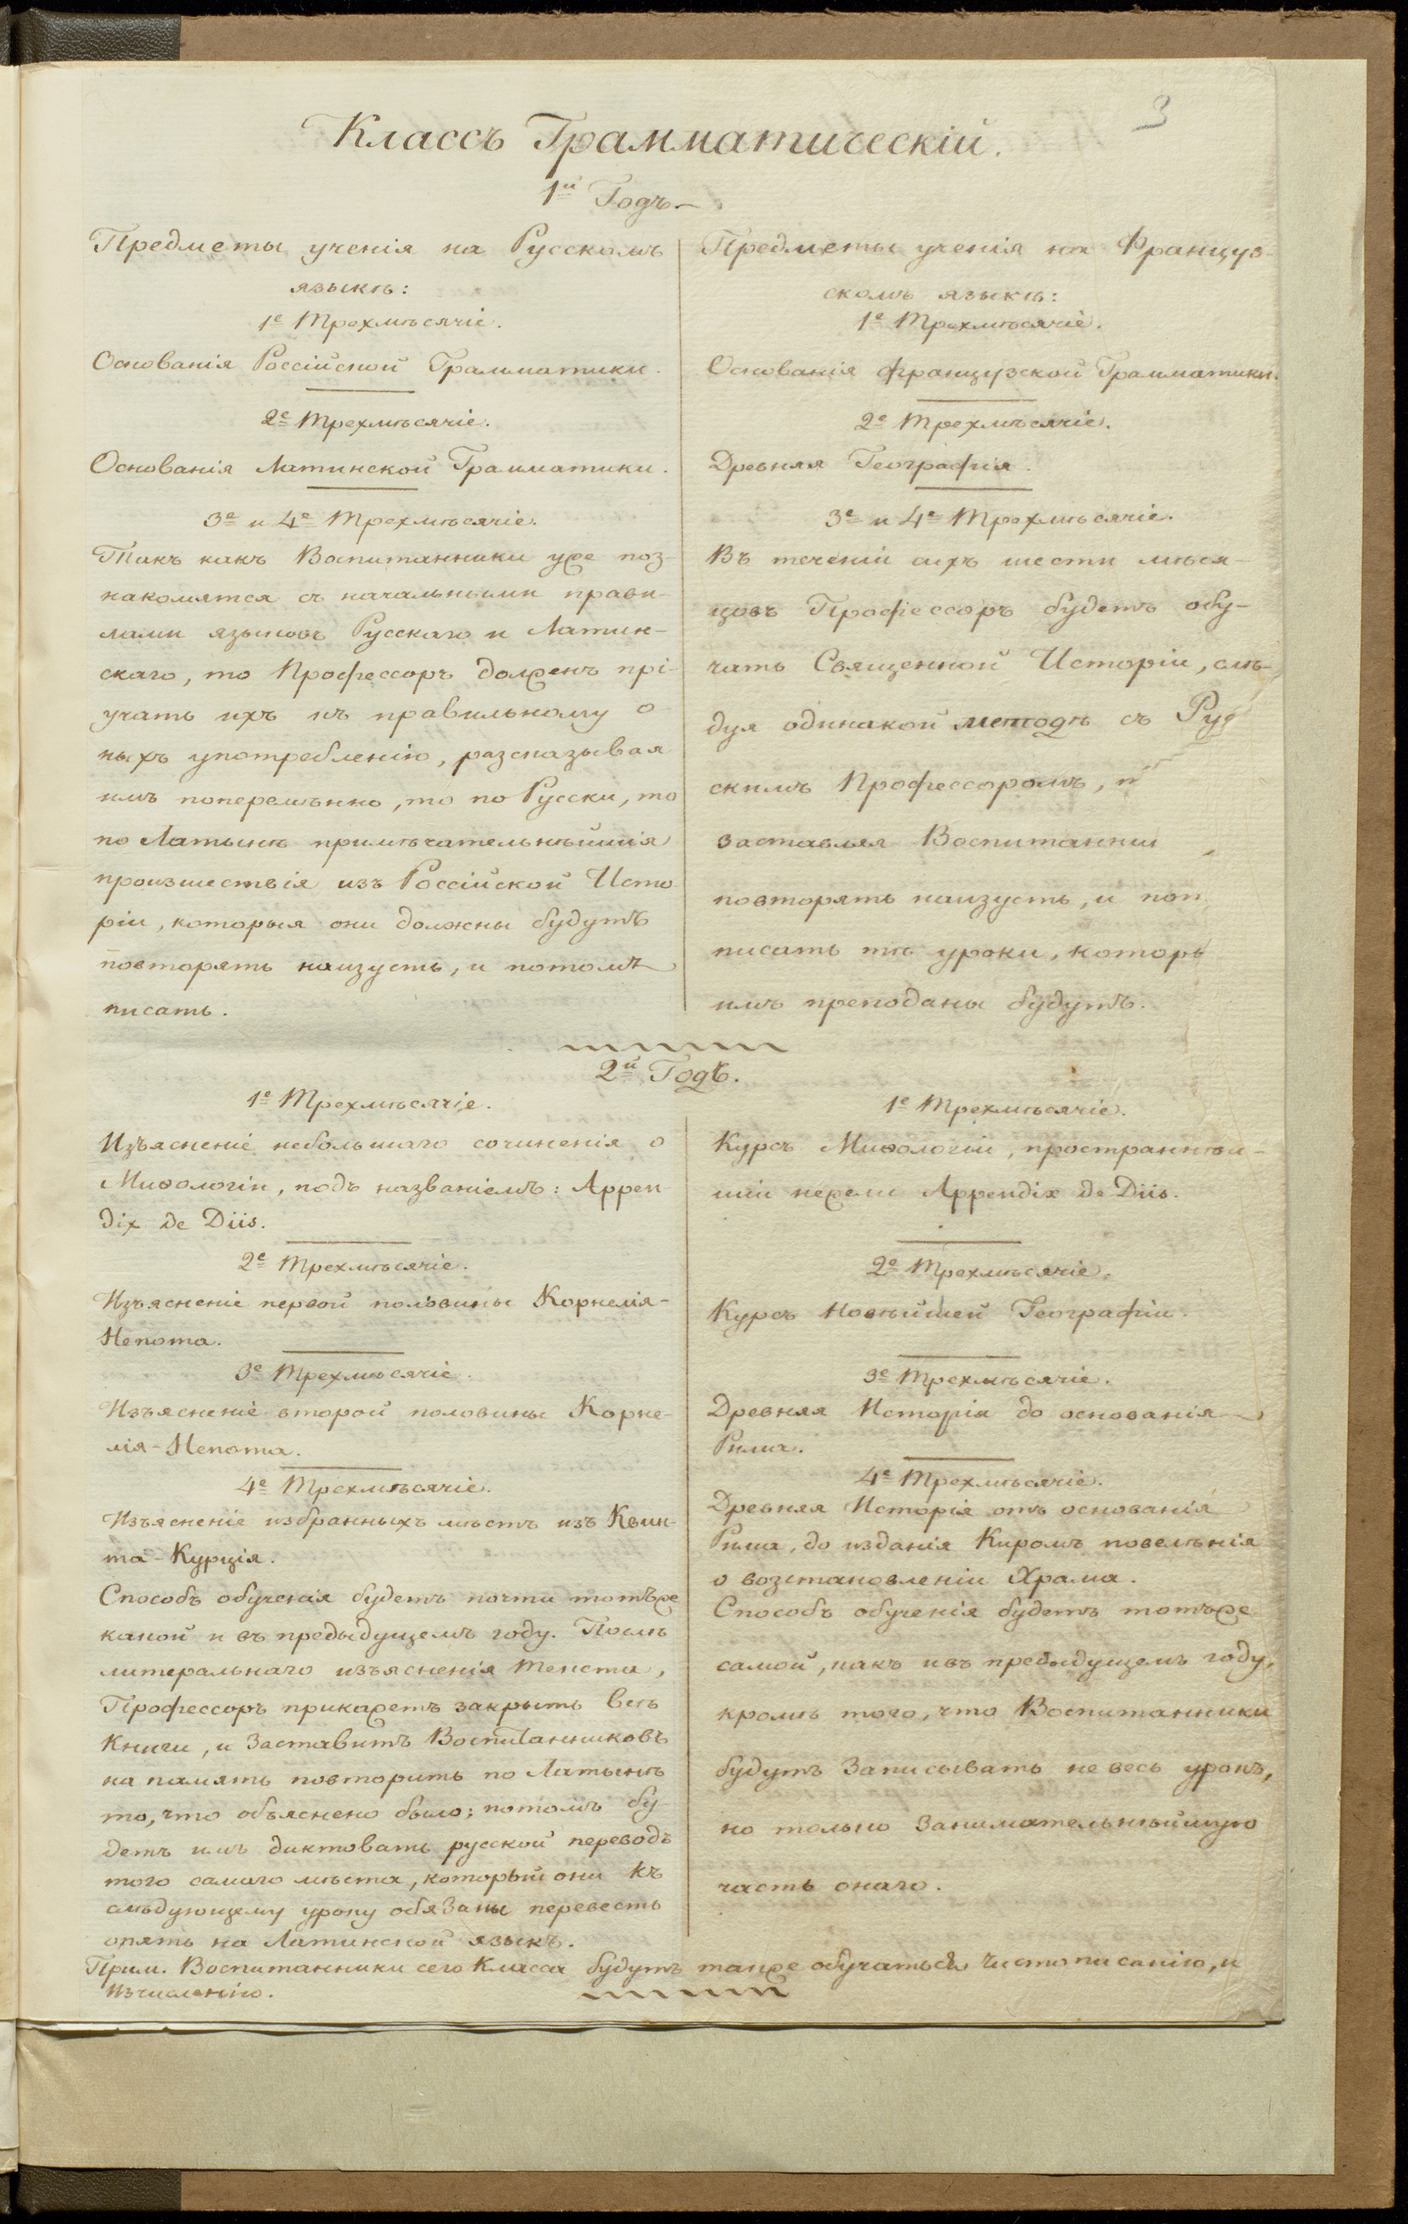 3
Классъ Грамматическій.
1й Годъ
Предметы ученія на Русскомъ
языкѣ:
1е Трехмѣсячіе.
Основанія Россійской Грамматики.
2е Трехмѣсячіе.
Основанія Латинской Грамматики.
3е и 4е Трехмѣсячіе.
Такъ какъ Воспитанники уже поз-
накомятся съ начальными прави-
лами языковъ Русскаго и Латин-
скаго, то Профессоръ долженъ прі-
учать ихъ къ правильному о-
ныхъ употребленію, разсказывая
имъ поперемѣнно, то по Русски, то
по Латынѣ примѣчательнѣйшія
произшествія изъ Россійской Исто-
ріи, которыя они должны будутъ
повторять наизусть, и потомъ
писать.
Предметы ученія на Француз-
скомъ языкѣ:
1е Трехмѣсячіе.
Основанія французской Грамматики.
2е Трехмѣсячіе.
Древняя Географія.
3е и 4е Трехмѣсячіе.
Въ теченіи сихъ шести мѣся-
цовъ Профессоръ будетъ обу-
чать Священной Исторіи, слѣ-
дуя одинакой методѣ съ Рус
скимъ Профессоромъ,
заставляя Воспитанни
повторять наизусть, и поп
писать тѣ уроки, которы
имъ преподаны будутъ.
2й Годъ.
1е Трехмѣсячіе.
Изъясненіе небольшаго сочиненія о
Миѳологіи, подъ названіемъ: Appen-
dix de Diis.
2е Трехмѣсячіе.
Изъясненіе первой половины Корнелія-
Непота.
3е Трехмѣсячіе.
Изъясненіе второй половины Корне-
лія-Непота.
4е Трехмѣсячіе.
Изъясненіе избранныхъ мѣстъ изъ Квин-
та-Курція.
Способъ обученія будетъ почти тотъже
какой и въ предыдущемъ году. Послѣ
литеральнаго изъясненія текста,
Профессоръ прикажетъ закрыть всѣ
книги, и заставитъ Воспитанниковъ
на память повторить по Латынѣ
то, что объяснено было; потомъ бу-
детъ имъ диктовать русской переводъ
того самаго мѣста, который они къ
слѣдующему уроку обязаны перевесть
опять на Латинской языкъ.
1е Трехмѣсячіе.
Курсъ Миѳологіи, пространнѣй-
шій нежели Appendix de Diis.
2е Трехмѣсячіе.
Курсъ Новѣйшей Географіи.
3е Трехмѣсячіе.
Древняя Исторія до основанія
Рима.
4е Трехмѣсячіе.
Древняя Исторія отъ основанія
Рима, до изданія Киромъ повелѣнія
о возстановленіи Храма.
Способъ обученія будетъ тотъже
самой, какъ и въ предыдущемъ году,
кромѣ того, что Воспитанники
будутъ записывать не весь урокъ,
но только занимательнѣйшую
часть онаго.
Прим. Воспитанники сего Класса будутъ также обучаться Чистописанію, и
Изчисленію.